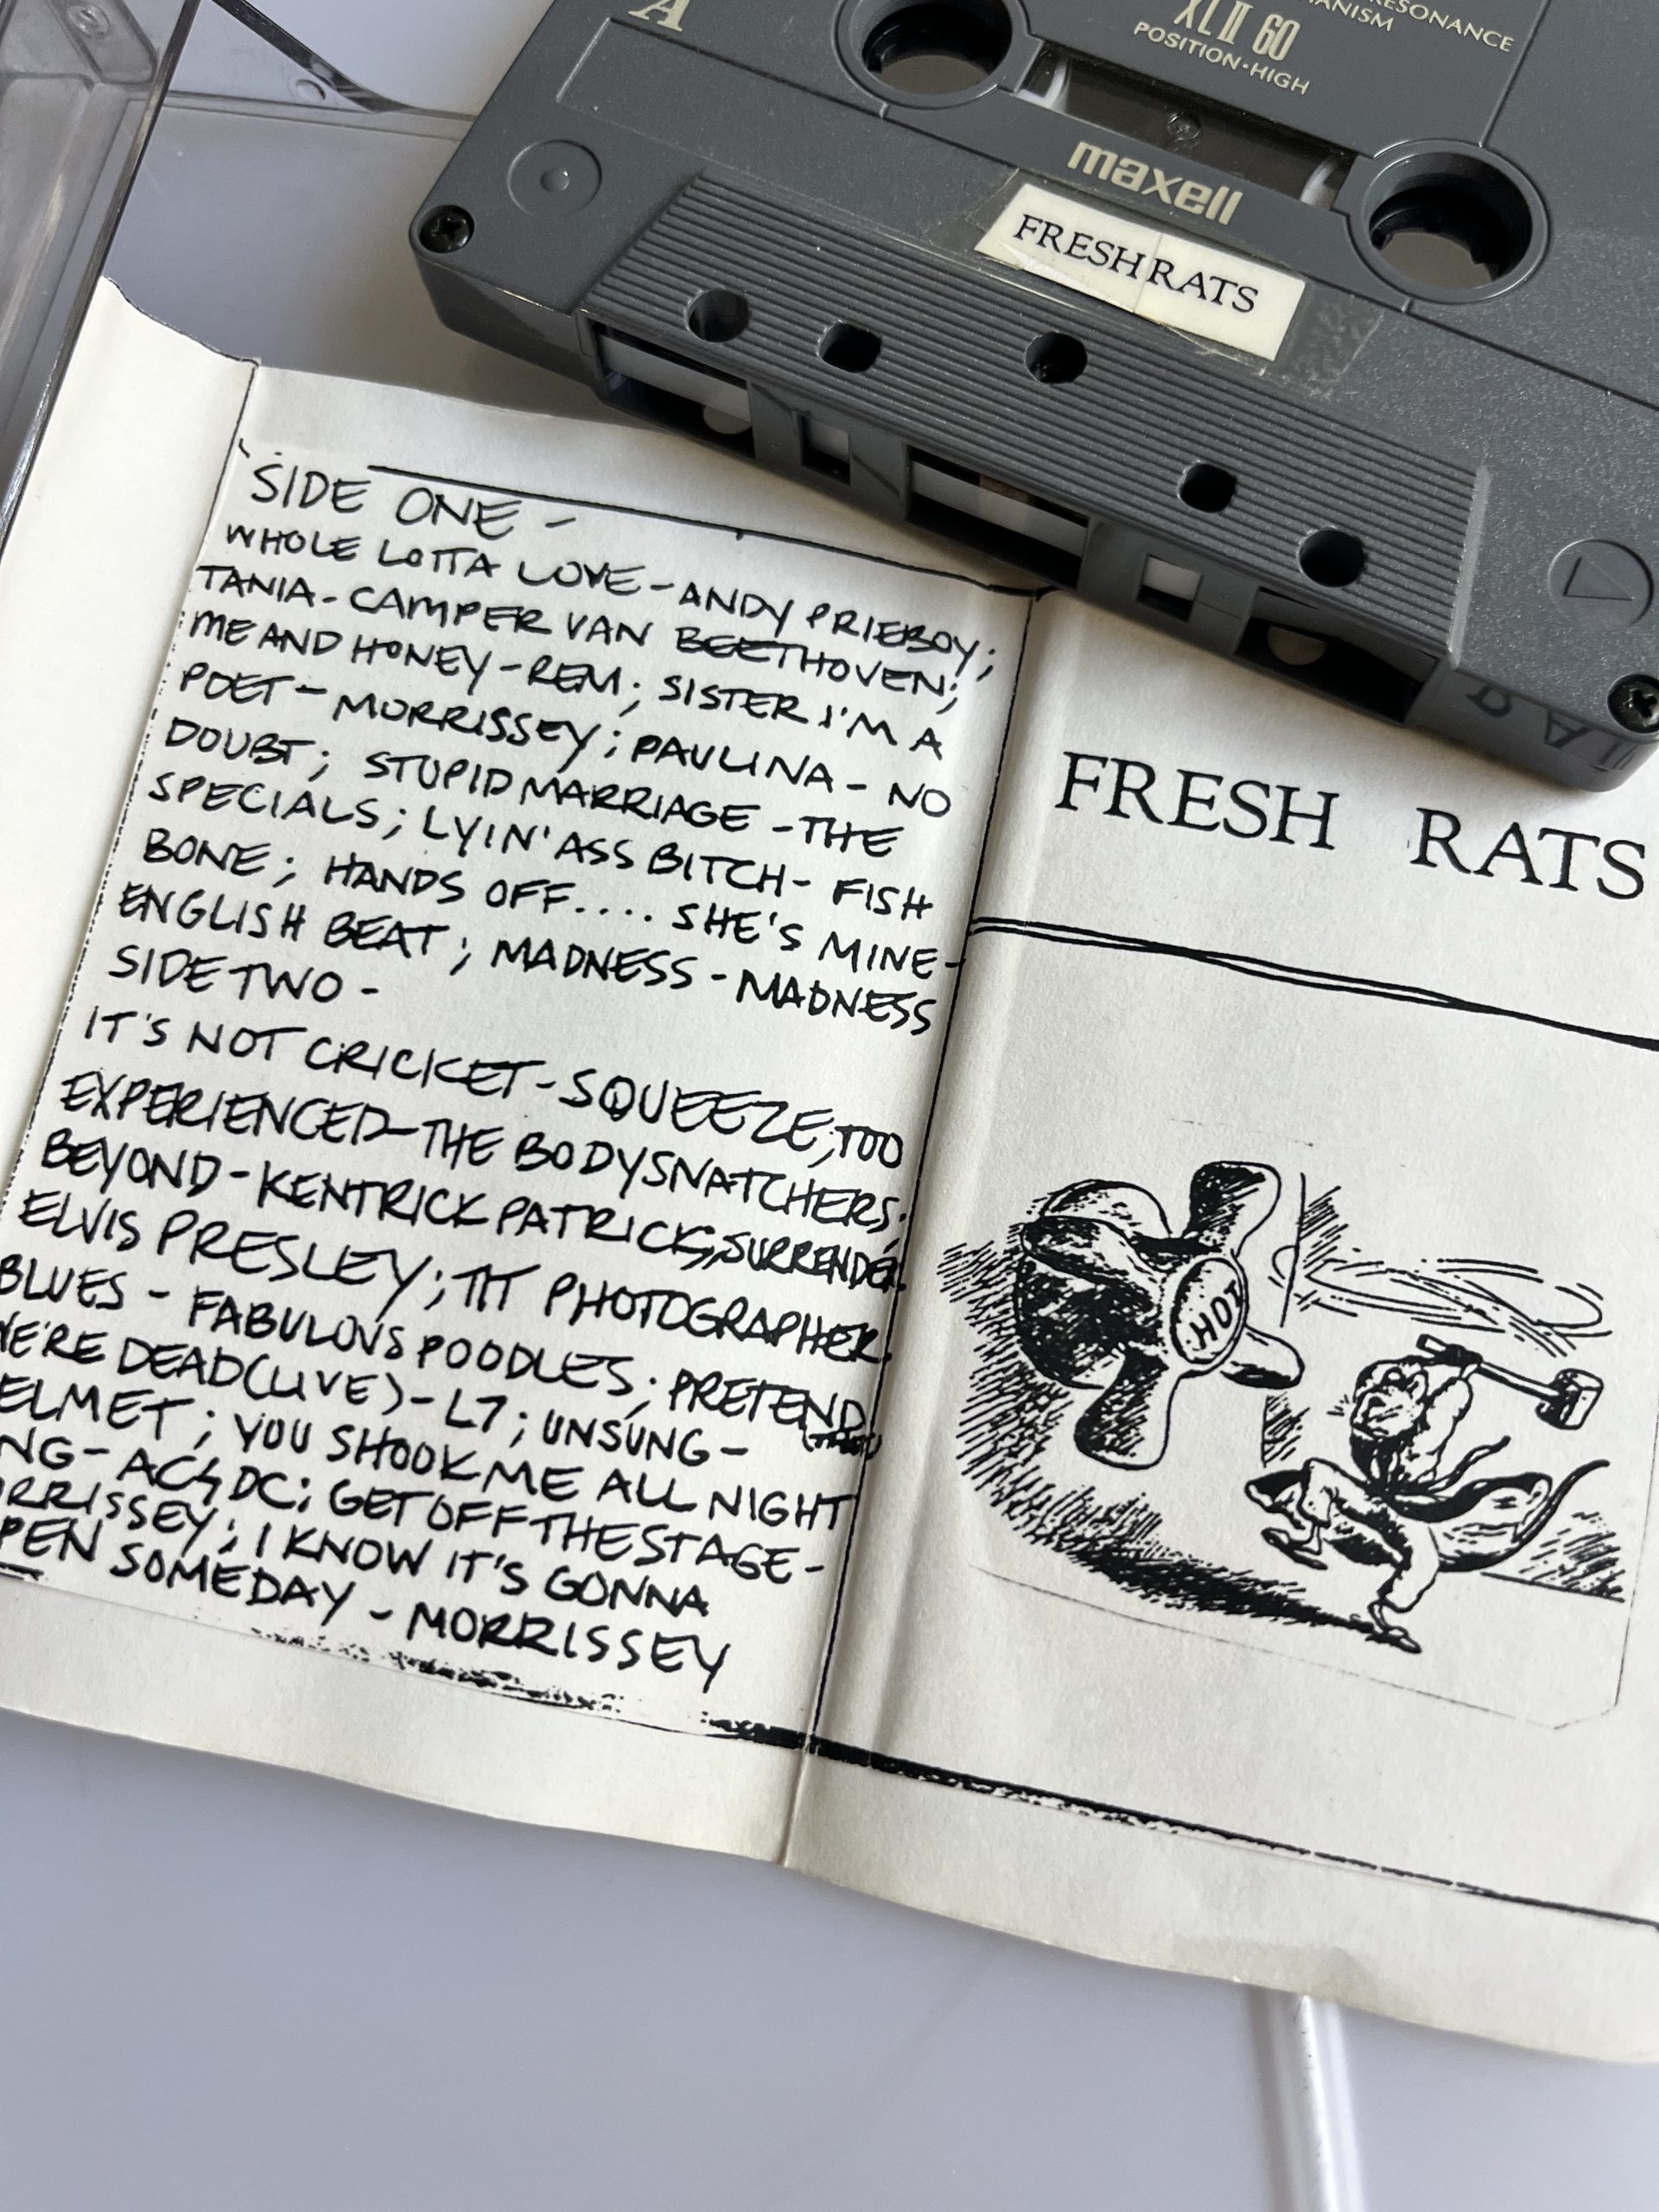 A
RESONANCE
XLII 60
POSITION·HIGH
maxell
FRESH RATS
SIDE ONE -
WHOLE LOTTA LOVE - ANDY PRIEBOY;
TANIA - CAMPER VAN BEETHOVEN;
ME AND HONEY - REM; SISTER I'M A
POET - MORRISSEY; PAULINA - NO
DOUBT; STUPID MARRIAGE - THE
SPECIALS; LYIN' ASS BITCH - FISH
BONE; HANDS OFF.... SHE'S MINE -
ENGLISH BEAT; MADNESS - MADNESS
SIDE TWO -
IT'S NOT CRICKET - SQUEEZE; TOO
EXPERIENCED - THE BODYSNATCHERS;
BEYOND - KENTRICK PATRICK; SURRENDER -
ELVIS PRESLEY; TIT PHOTOGRAPHER
BLUES - FABULOUS POODLES; PRETEND
WE'RE DEAD (LIVE) - L7; UNSUNG -
ELMET; YOU SHOOK ME ALL NIGHT
NG - AC⚡DC; GET OFF THE STAGE -
RRISSEY; I KNOW IT'S GONNA
PEN SOMEDAY - MORRISSEY
FRESH RATS
HOT